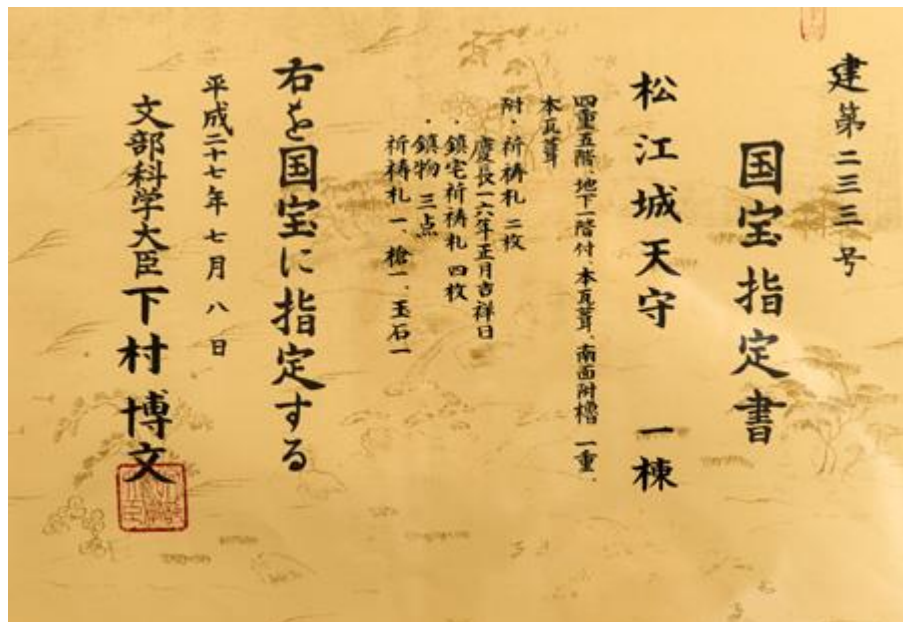 建第二三三号
国宝指定書
松江城天守 一棟
四重五階、地下一階付、本瓦葺、南面附櫓 一重、
本瓦葺
附・祈祷札 二枚
慶長一六年正月吉祥日
・鎮宅祈祷札 四枚
・鎮物 三点
祈祷札一、槍一、玉石一
右を国宝に指定する
平成二十七年七月八日
文部科学大臣 下村博文